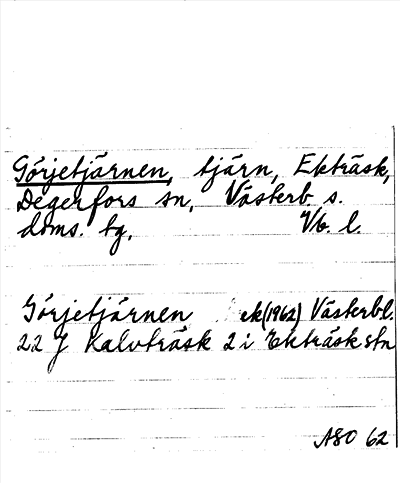 Görjetjärnen, tjärn, Ekträsk,
Degerfors sn, Västerb. s.
doms. tg, Vb. l.
Görjetjärnen ek(1962) Västerbl.
22 J Kalvträsk 2 i Ekträsk stn
ASO 62